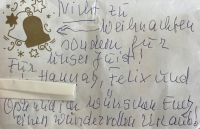 Nicht zu
Weihnachten
sondern für
unser
Für Hannag, Felix und
Opa und Oma wünschen Euch
einen wundervollen Urlaub!